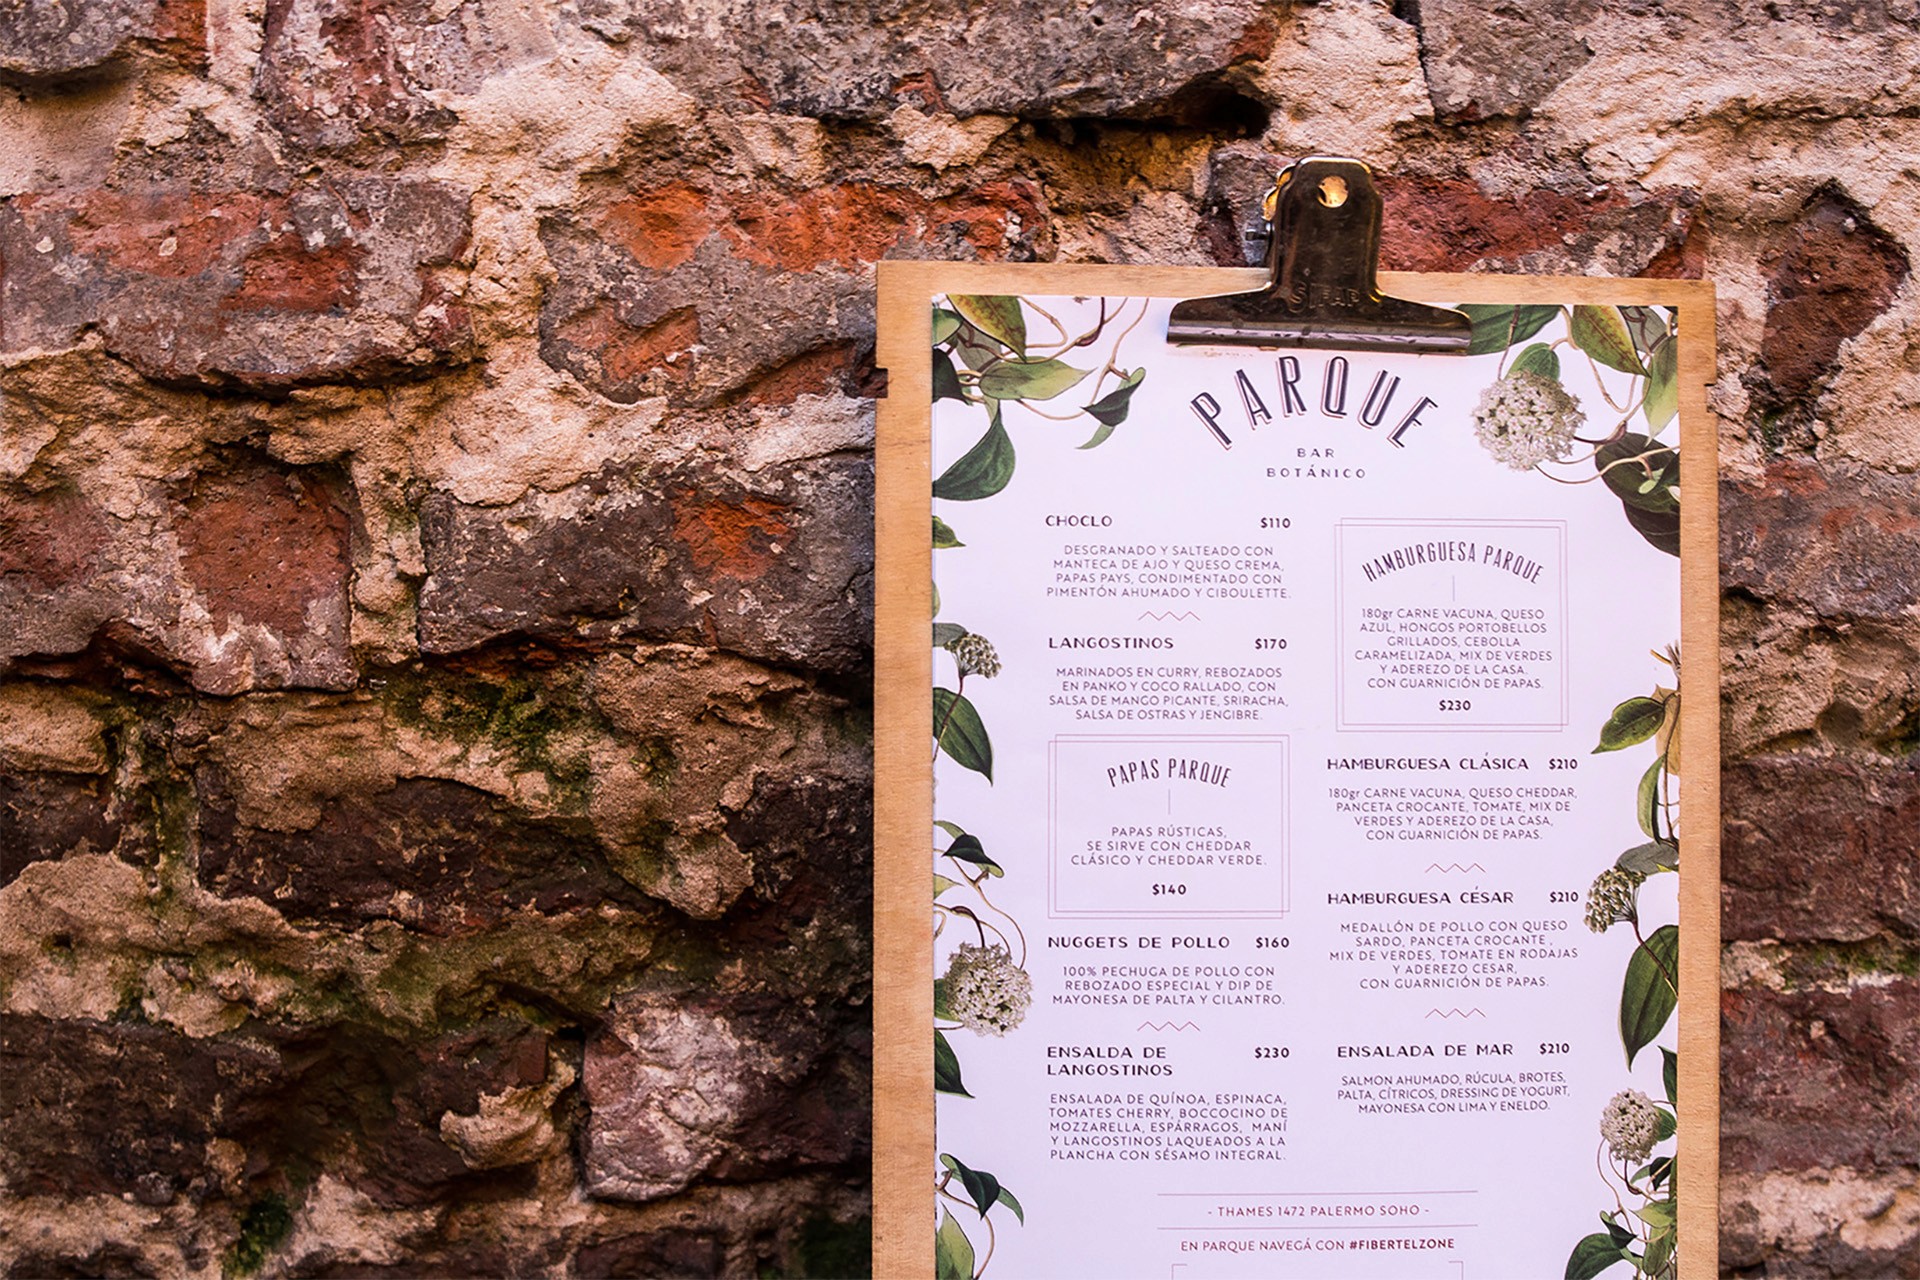 PARQUE
BAR
BOTÁNICO
CHOCLO $110
DESGRANADO Y SALTEADO CON
MANTECA DE AJO Y QUESO CREMA,
PAPAS PAYS, CONDIMENTADO CON
PIMENTÓN AHUMADO Y CIBOULETTE.
LANGOSTINOS $170
MARINADOS EN CURRY, REBOZADOS
EN PANKO Y COCO RALLADO, CON
SALSA DE MANGO PICANTE, SRIRACHA,
SALSA DE OSTRAS Y JENGIBRE.
PAPAS PARQUE
PAPAS RÚSTICAS,
SE SIRVE CON CHEDDAR
CLÁSICO Y CHEDDAR VERDE.
$140
NUGGETS DE POLLO $160
100% PECHUGA DE POLLO CON
REBOZADO ESPECIAL Y DIP DE
MAYONESA DE PALTA Y CILANTRO.
ENSALDA DE $230
LANGOSTINOS
ENSALADA DE QUÍNOA, ESPINACA,
TOMATES CHERRY, BOCCOCINO DE
MOZZARELLA, ESPÁRRAGOS, MANÍ
Y LANGOSTINOS LAQUEADOS A LA
PLANCHA CON SÉSAMO INTEGRAL.
HAMBURGUESA PARQUE
180gr CARNE VACUNA, QUESO
AZUL, HONGOS PORTOBELLOS
GRILLADOS, CEBOLLA
CARAMELIZADA, MIX DE VERDES
Y ADEREZO DE LA CASA,
CON GUARNICIÓN DE PAPAS.
$230
HAMBURGUESA CLÁSICA $210
180gr CARNE VACUNA, QUESO CHEDDAR,
PANCETA CROCANTE, TOMATE, MIX DE
VERDES Y ADEREZO DE LA CASA,
CON GUARNICIÓN DE PAPAS.
HAMBURGUESA CÉSAR $210
MEDALLÓN DE POLLO CON QUESO
SARDO, PANCETA CROCANTE ,
MIX DE VERDES, TOMATE EN RODAJAS
Y ADEREZO CESAR,
CON GUARNICIÓN DE PAPAS.
ENSALADA DE MAR $210
SALMON AHUMADO, RÚCULA, BROTES,
PALTA, CÍTRICOS, DRESSING DE YOGURT,
MAYONESA CON LIMA Y ENELDO.
- THAMES 1472 PALERMO SOHO -
EN PARQUE NAVEGÁ CON #FIBERTELZONE